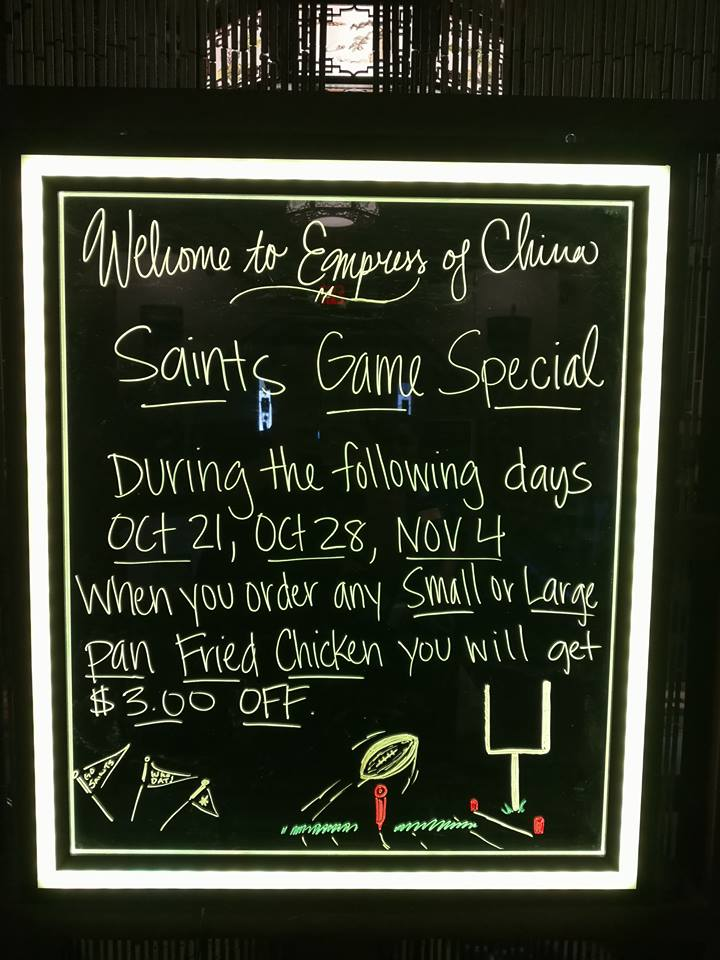 Welcome to Empress of China
Saints Game Special
During the following days
Oct 21, Oct 28, Nov 4
When you order any Small or Large
pan Fried Chicken you will get
$3.00 OFF.
GO SAINTS
WHO DAT!